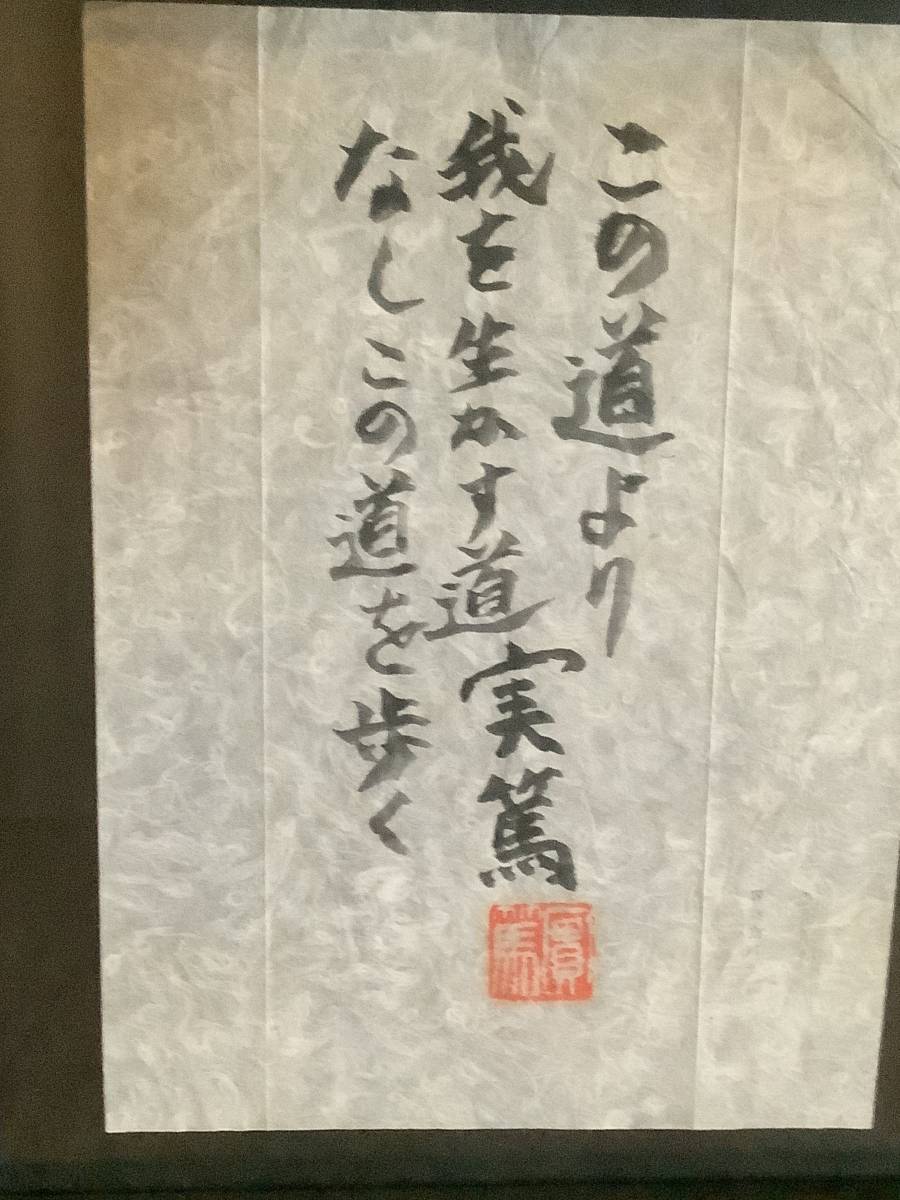 この道より
我を生かす道
なしこの道を歩く
実篤
實篤